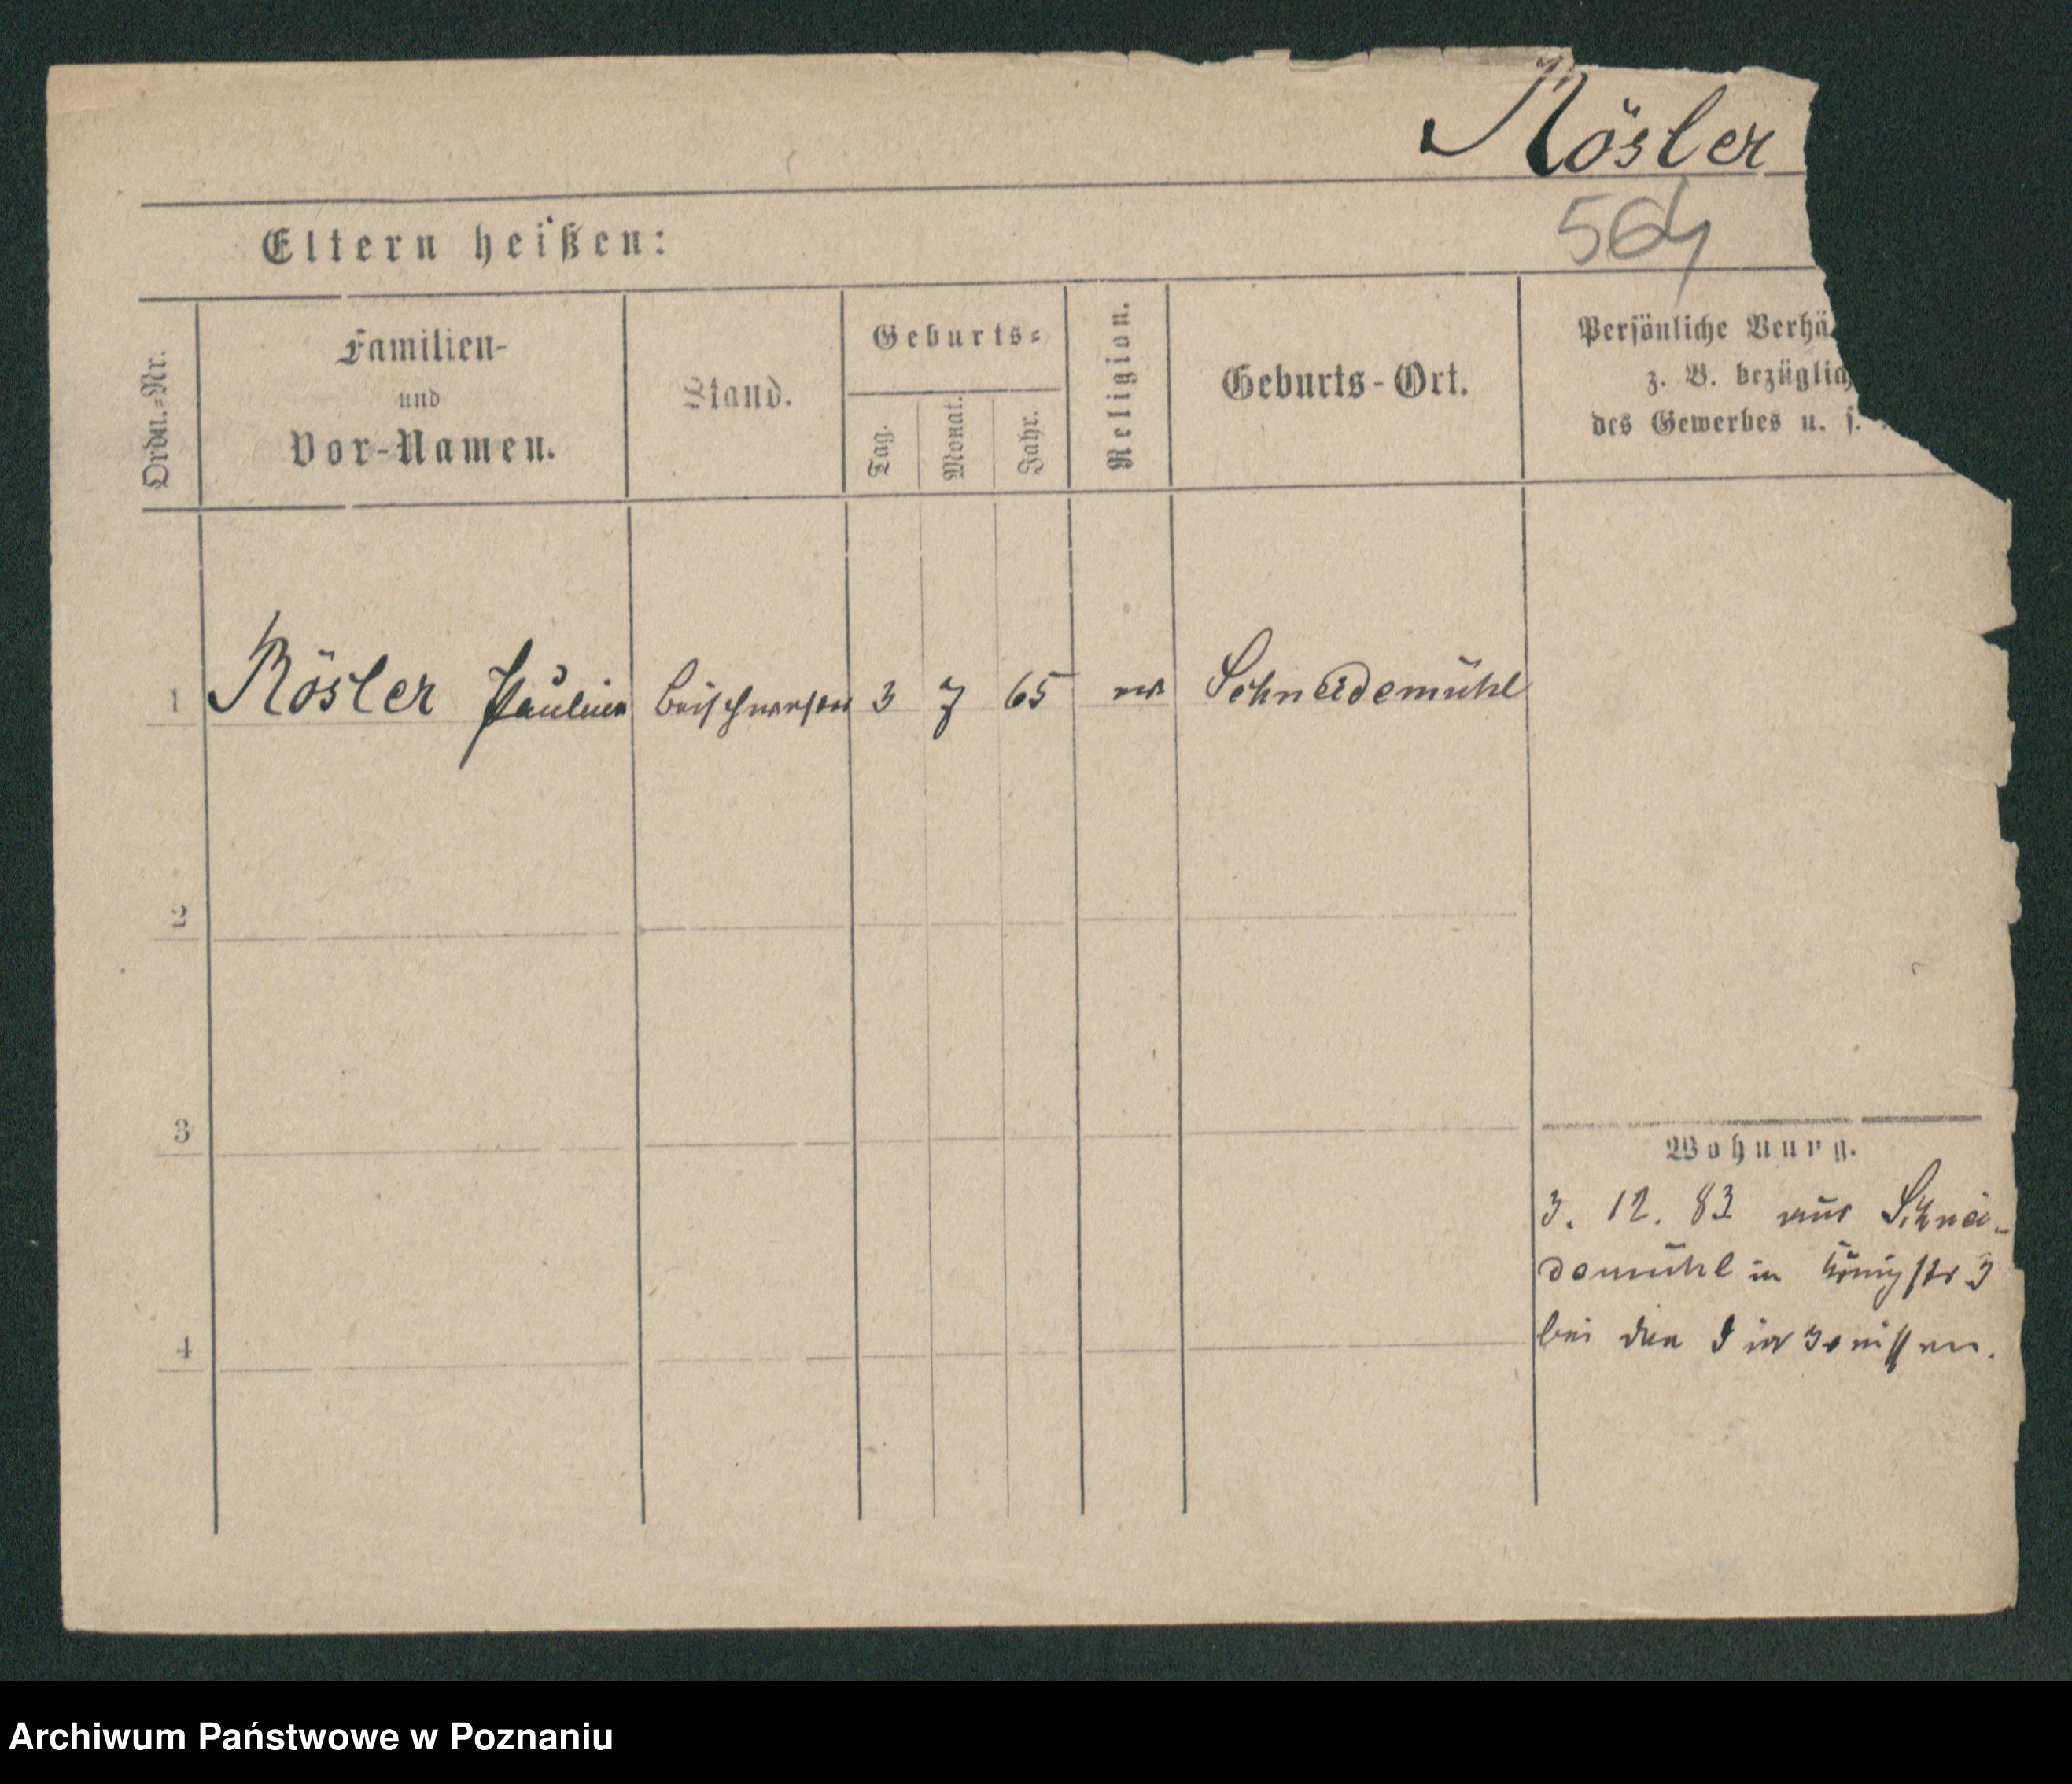 Rösler
564
Eltern heißen:
Ordn.=Nr.
Familien-
und
Vor-Namen.
Stand.
Geburts=
Tag.
Monat.
Jahr.
Religion.
Geburts-Ort.
Persönliche Verhä
z. B. bezüglich
des Gewerbes u. s.
1 Rösler Pauline 3 7 65 ev Schneidemühl
2
3
Wohnung.
3. 12. 83 aus Schnei-
demühl in Königstr
4
bei den Diakonissen.
Archiwum Państwowe w Poznaniu